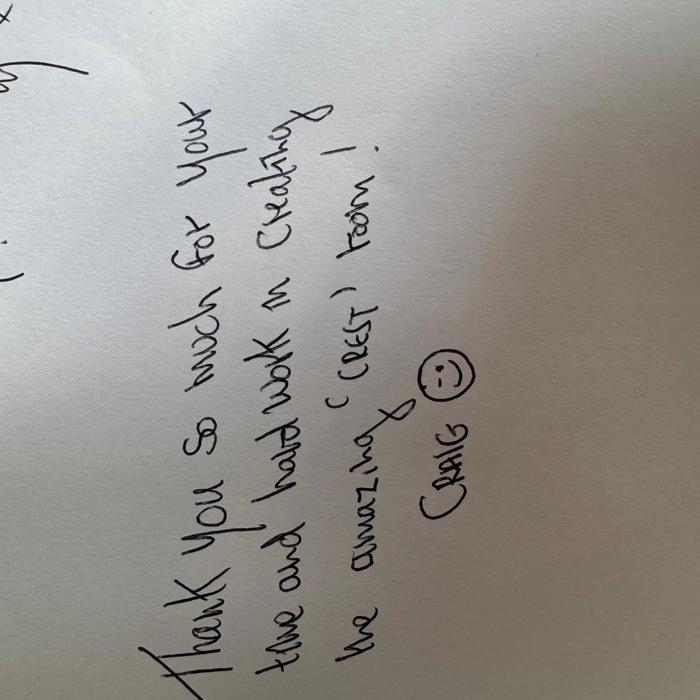 Thank you so much for your
time and hard work in creating
the amazing 'CREST' room!
CRAIG